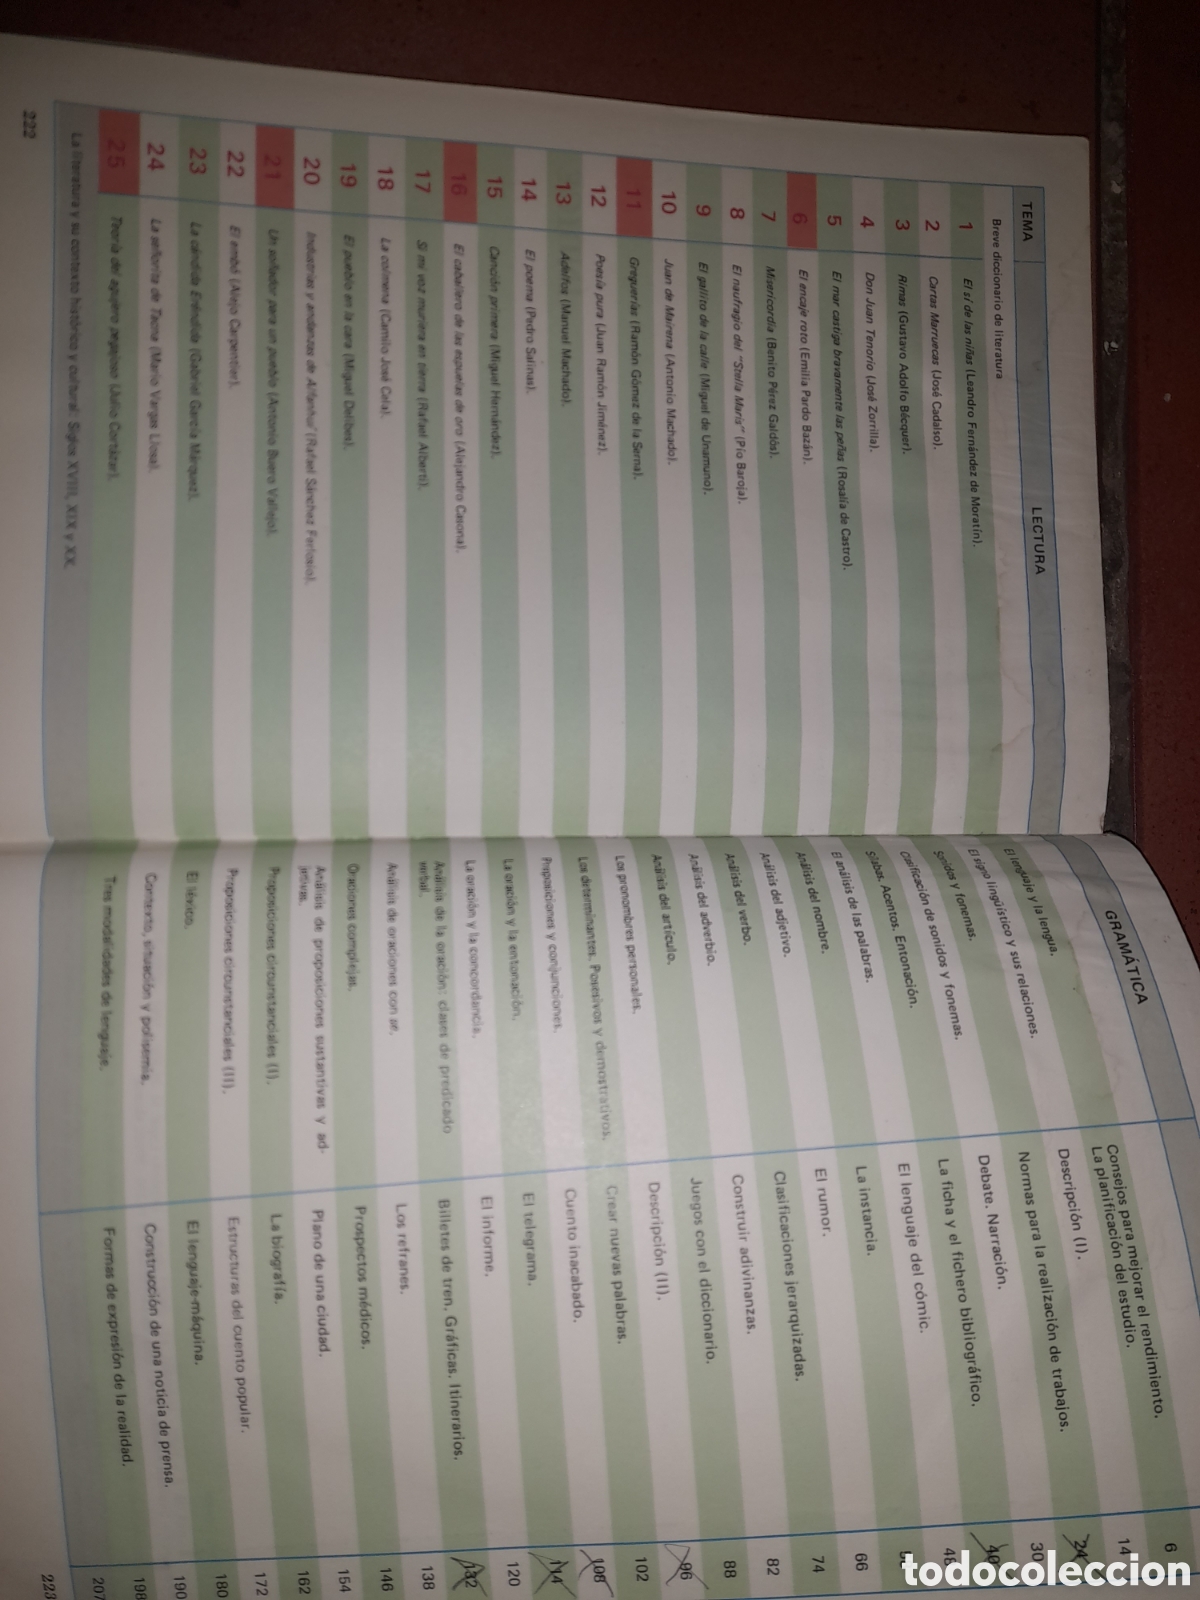 TEMA LECTURA
Breve diccionario de literatura
1 El sí de las niñas (Leandro Fernández de Moratín).
2 Cartas Marruecas (José Cadalso).
3 Rimas (Gustavo Adolfo Bécquer).
4 Don Juan Tenorio (José Zorrilla).
5 El mar castiga bravamente las peñas (Rosalía de Castro).
6 El encaje roto (Emilia Pardo Bazán).
7 Misericordia (Benito Pérez Galdós).
8 El naufragio del "Stella Maris" (Pío Baroja).
9 El gallito de la calle (Miguel de Unamuno).
10 Juan de Mairena (Antonio Machado).
11 Greguerías (Ramón Gómez de la Serna).
12 Poesía pura (Juan Ramón Jiménez).
13 Adelfos (Manuel Machado).
14 El poema (Pedro Salinas).
15 Canción primera (Miguel Hernández).
16 El caballero de las espuelas de oro (Alejandro Casona).
17 Si mi voz muriera en tierra (Rafael Alberti).
18 La colmena (Camilo José Cela).
19 El pueblo en la cara (Miguel Delibes).
20 Industrias y andanzas de Alfanhuí (Rafael Sánchez Ferlosio).
21 Un soñador para un pueblo (Antonio Buero Vallejo).
22 El embó (Alejo Carpentier).
23 La cándida Eréndida (Gabriel García Márquez).
24 La señorita de Tacna (Mario Vargas Llosa).
25 Teoría del agujero pegajoso (Julio Cortázar).
La literatura y su contexto histórico y cultural. Siglos XVIII, XIX y XX.
222
GRAMÁTICA
6
El lenguaje y la lengua. Consejos para mejorar el rendimiento. 14
La planificación del estudio.
El signo lingüístico y sus relaciones. Descripción (I). 24
Sonidos y fonemas. Normas para la realización de trabajos. 30
Clasificación de sonidos y fonemas. Debate. Narración. 40
Sílabas. Acentos. Entonación. La ficha y el fichero bibliográfico. 48
El análisis de las palabras. El lenguaje del cómic.
Análisis del nombre. La instancia. 66
Análisis del adjetivo. El rumor. 74
Análisis del verbo. Clasificaciones jerarquizadas. 82
Análisis del adverbio. Construir adivinanzas. 88
Análisis del artículo. Juegos con el diccionario. 96
Los pronombres personales. Descripción (II). 102
Los determinantes. Posesivos y demostrativos. Crear nuevas palabras. 108
Preposiciones y conjunciones. Cuento inacabado. 114
La oración y la entonación. El telegrama. 120
La oración y la concordancia. El informe. 132
Análisis de la oración: clases de predicado Billetes de tren. Gráficas. Itinerarios. 138
verbal.
Análisis de oraciones con se. Los refranes. 146
Oraciones complejas. Prospectos médicos. 154
Análisis de proposiciones sustantivas y ad- Plano de una ciudad. 162
jetivas.
Proposiciones circunstanciales (I). La biografía. 172
Proposiciones circunstanciales (II). Estructuras del cuento popular. 180
El léxico. El lenguaje-máquina. 190
Contexto, situación y polisemia. Construcción de una noticia de prensa. 198
Tres modalidades de lenguaje. Formas de expresión de la realidad. 207
223
todocoleccion